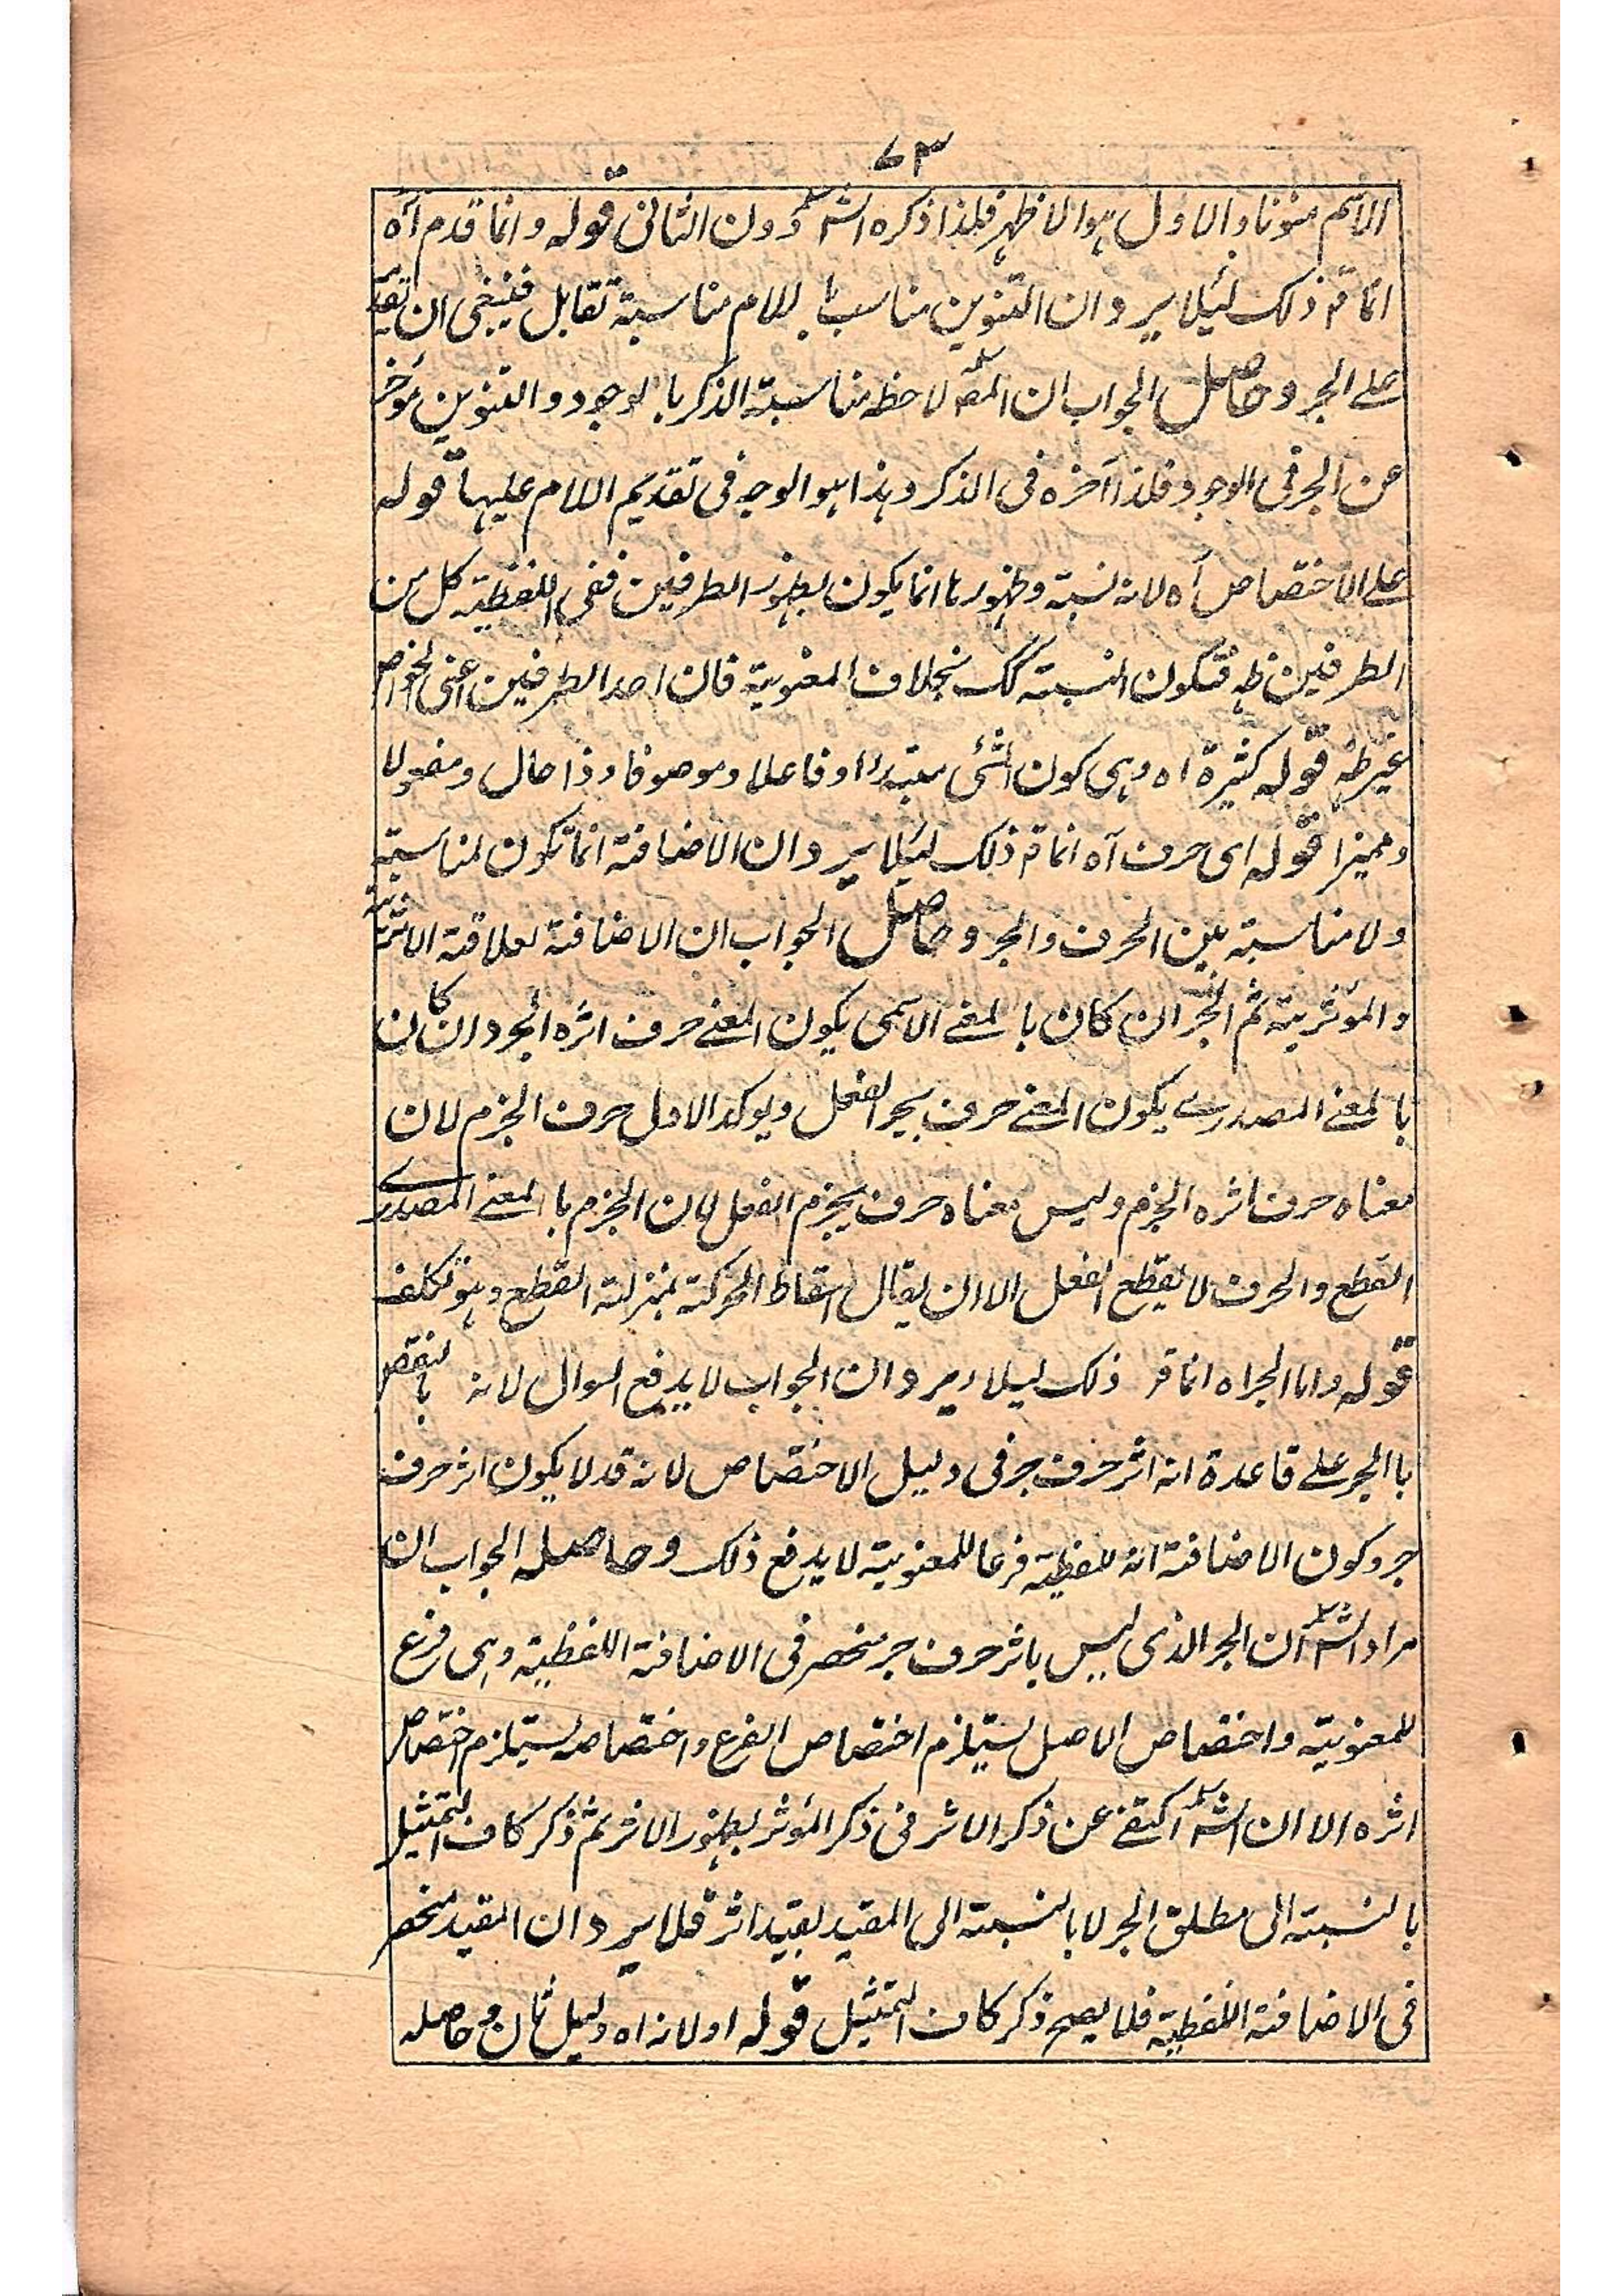 ٧٣
الاسم منونا والاول ہو الاظہر فلذا ذکرہ الشؒ دون الثانی قولہ وانما قدم آہ
انما قہ ذلک لئیلا یرد ان التنوین مناسب للام مناسبة تقابل فینبغی ان تقدم
علے الجر وحاصل الجواب ان المصؒ لاحظہ مناسبة الذکر بالوجود والتنوین مؤخر
عن الجر فی الوجود فلذا آخرہ فی الذکر وہذا ہو الوجہ فی تقدیم اللام علیہا قولہ
علے الاختصاص آہ لانہ نسبتہ وظہورہا انما یکون بظہور الطرفین ففی اللفظیة کل من
الطرفین ظہ فتکون النسبتہ کک بخلاف المعنویة فان احد الطرفین اعنی الخواص
غیر ظہ قولہ کثیرة اہ وہی کون الشئ مبتدرا او فاعلا وموصوفا وذا حال ومفعولا
وممیزا قولہ ای حرف آہ انما قہ ذلک لیئلا یرد ان الاضافتہ انما تکون لمناسبتہ
ولا مناسبتہ بین الحرف والجر وحاصل الجواب ان الاضافتہ لعلاقتہ الاثریتہ
والمؤثریتہ ثم الجر ان کان بالمعنے الاسمی یکون المعنے حرف اثرہ الجر وان کان
بالمعنے المصدرے یکون المعنے حرف یجر الفعل ویوکد الاول حرف الجزم لان
معناہ حرف اثرہ الجزم ولیس معناہ حرف یجزم الفعل لان الجزم بالمعنے المصدرے
القطع والحرف لا یقطع الفعل الا ان یقال اسقاط الحرکتہ بمنزلتہ القطع وہو تکلف
قولہ واما الجر اہ انما قر ذلک لیلا یرد ان الجواب لا یدفع السوال لانہ بانتقض
باالجر علے قاعدة انہ اثر حرف جر فی دلیل الاختصاص لانہ قد لا یکون اثر حرف
جر وکون الاضافتہ اللفظیتہ فرعا للمعنویتہ لا یدفع ذلک وحاصلہ الجواب ان
مراد الشؒ ان الجر الذی لیس باثر حرف جر منحصر فی الاضافتہ اللفظیتہ وہی فرع
للمعنویتہ واختصاص الاصل یستیلزم اختصاص الفرع واختصاصہ یستیلزم اختصاص
اثرہ الا ان الشؒ اکتفے عن ذکر الاثر فی ذکر المؤثر بظہور الاثر ثم ذکر کاف التمثیل
بالنسبتہ الی مطلق الجر لا بالنسبتہ الی المقید بقید اثر فلا یرد ان المقید منحصر
فی الاضافتہ اللفظیتہ فلا یصح ذکر کاف التمثیل قولہ اولانہ اہ دلیل ثان وحاصلہ